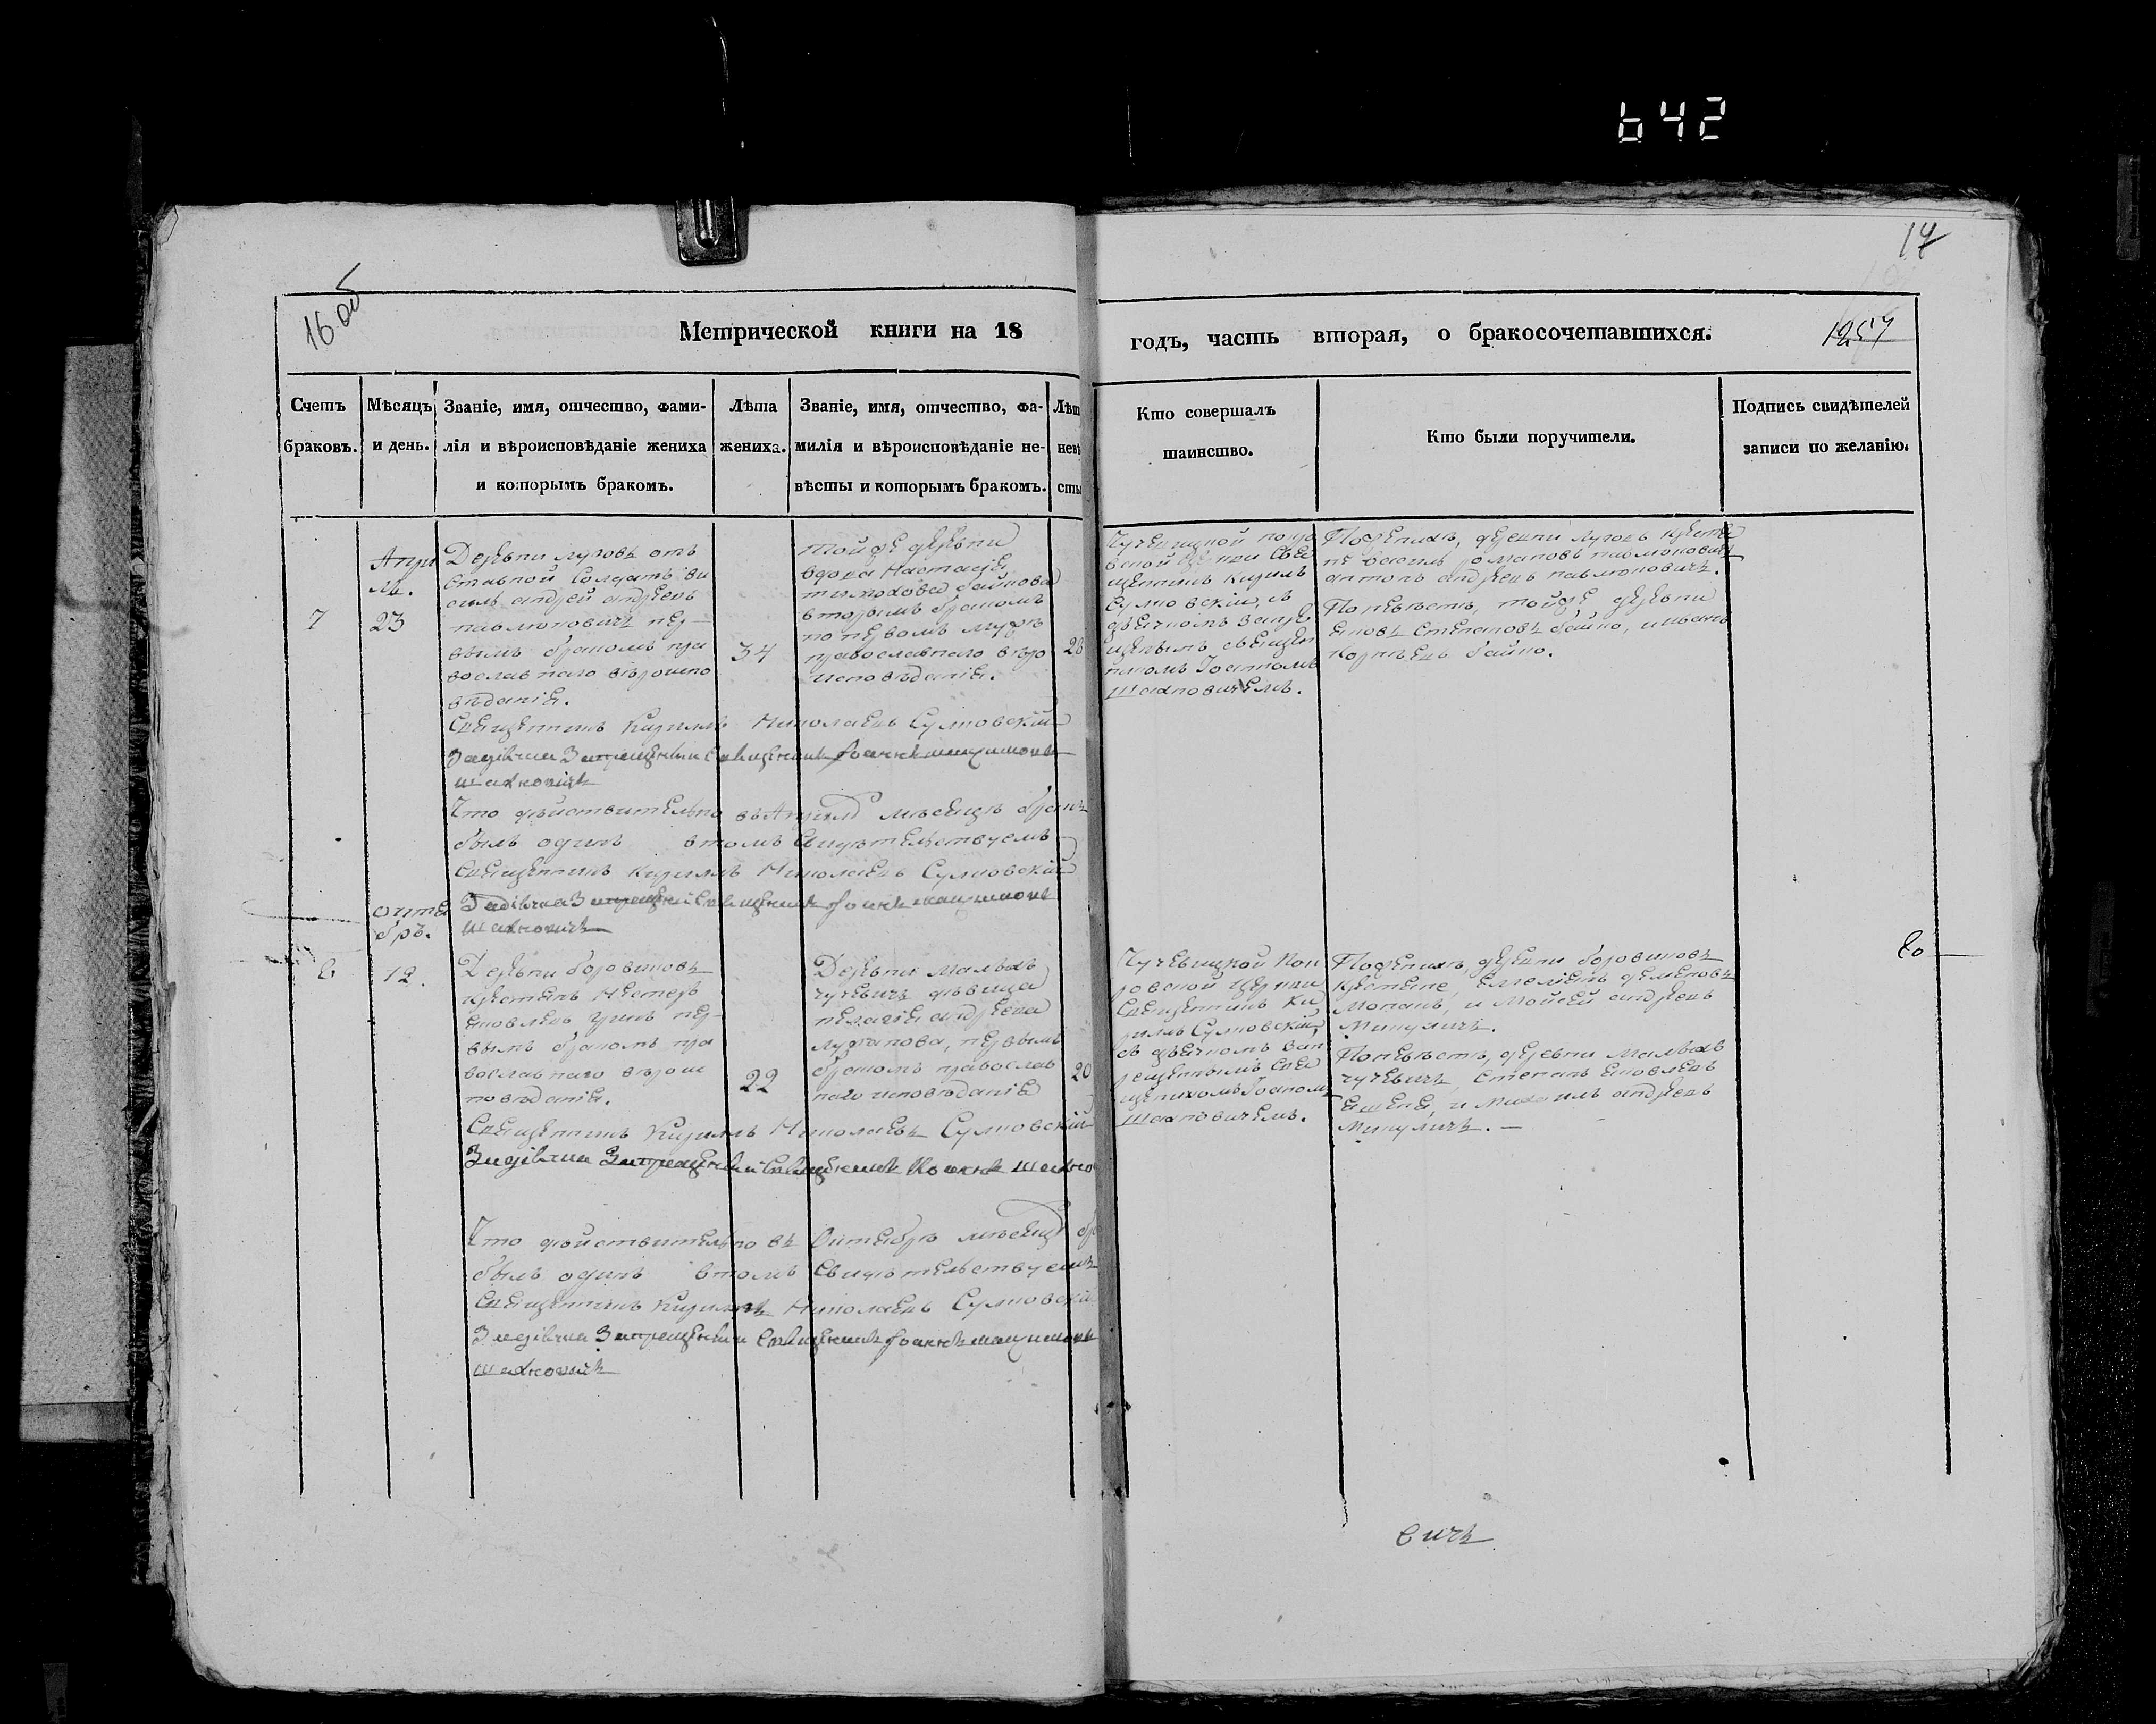 642
17
16 об
Метрической книги на 18
годъ, часть вторая, о бракосочетавшихся.
1257
Счетъ
браковъ.
Мѣсяцъ
и день.
Званіе, имя, отчество, фами-
лія и вѣроисповѣданіе жениха
и которымъ бракомъ.
Лѣта
жениха.
Званіе, имя, отчество, фа-
милія и вѣроисповѣданіе не-
вѣсты и которымъ бракомъ.
Лѣт
невѣ
сты
Кто совершалъ
таинство.
Кто были поручители.
Подпись свидѣтелей
записи по желанію.
7
Апри
ль.
23
Деревни Луговъ отъ
ставной Солдатъ ва
силь андрей андреевъ
павлюковичъ пер-
вымъ бракомъ пра
вославнаго вѣроиспо
вѣданія.
34
тойже деревни
вдова Настасія
тимохова байкова
вторымъ бракомъ
по первомъ мужѣ
православнаго вѣро
исповѣданія.
28
Чучевицкой покро
вской церкви Свя
щенникъ Кирилъ
Сулковскій, съ
дьячкомъ запре
щеннымъ священ
никомъ Іоанномъ
Шахновичемъ.
Поженихѣ, деревни Луговъ крестя
не василь романовъ павлюковичъ
антонъ андреевъ павлюковичъ.
Поневѣстѣ, тойже деревни
яковъ Степановъ байко, иванъ
Корнѣевъ байко.
Священникъ Кириллъ Николаевъ Сулковскій
Задіячка Запрещенный Священникъ Іоаннъ
шахновичъ
Что дѣйствительно въ Априлѣ мѣсяцѣ бракъ
былъ одинъ втомъ Свидѣтельствуемъ
Священникъ Кириллъ Николаевъ Сулковскій
Задіячка Запрещенный Священникъ Іоаннъ
шахновичъ
октя
бръ.
8
12.
Деревни боровиковъ
крестьянъ Нестеръ
яковлевъ пер-
вымъ бракомъ пра
вославнаго вѣрои
повѣданія.
22
Деревни Малыхъ
чучевичъ дѣвица
пелагія андреева
первымъ
бракомъ православ
наго исповѣданія
20
Чучевицкой Пок
ровской церкви
Священникъ Ки
рилъ Сулковскій,
съ дьячкомъ зап
рещеннымъ Свя
щеникомъ Іоаном
Шахновичемъ.
Поженихѣ, деревни боровиковъ
крестяне, емелянъ демяновъ
и Мойсей андреевъ
Микуличъ.
Поневѣстѣ, деревни Малыхъ
чучевичъ, Степанъ яковлевъ
и Михаилъ андреевъ
Микуличъ. —
Священникъ Кириллъ Николаевъ Сулковскій
Задіячка Запрещенный Священникъ Іоаннъ шахно
вичъ
Что дѣйствительно въ Октябрѣ мѣсяцѣ бр
былъ одинъ втомъ Свидѣтельствуемъ
Священникъ Кириллъ Николаевъ Сулковскій
Задіячка Запрещенный Священникъ Іоаннъ
шахновичъ